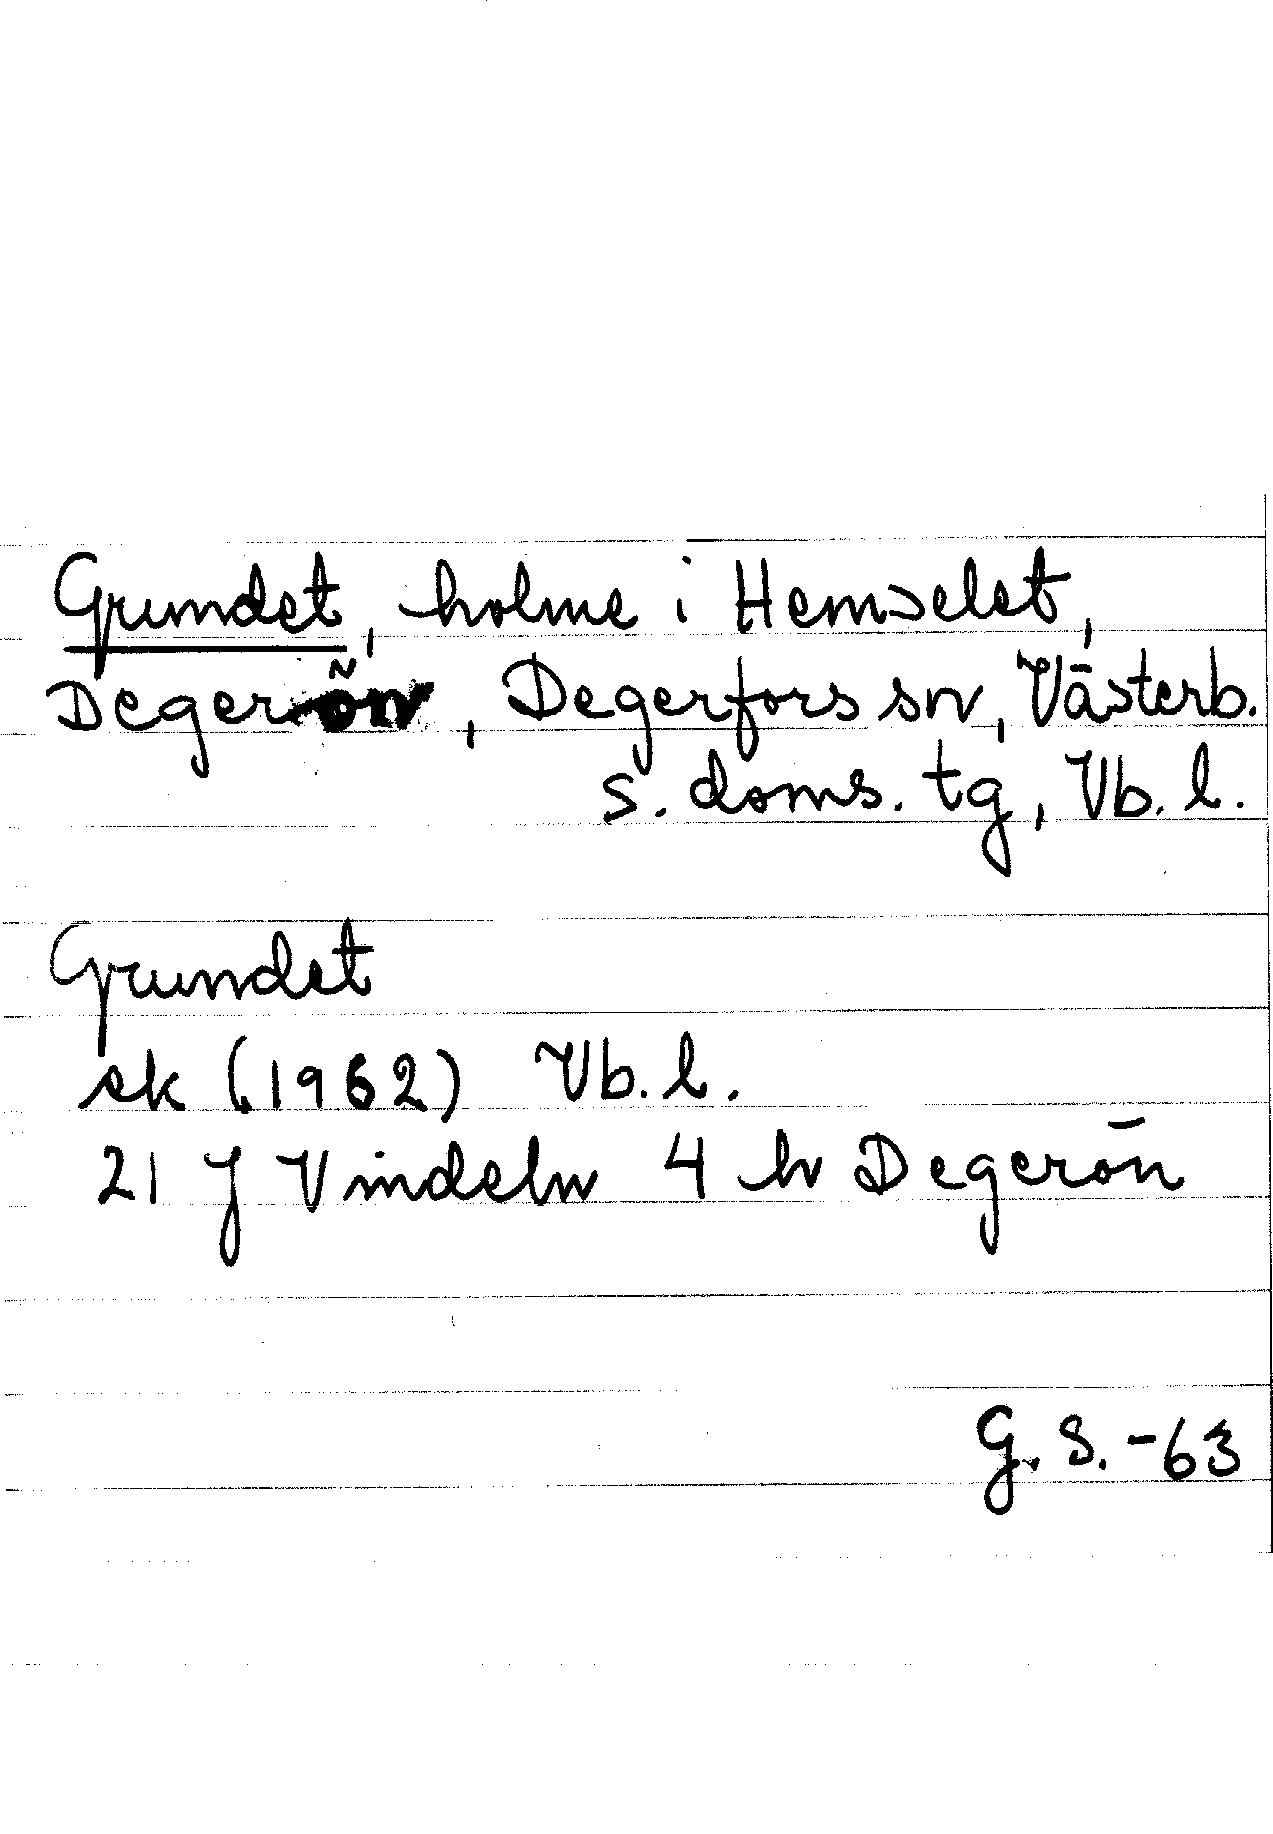 Grundet, holme i Hemselet,
Degerön, Degerfors sn, Västerb.
s. doms. tg, Vb. l.
Grundet
ek (1962) Vb. l.
21 J Vindeln 4 h Degerön
G. S. -63